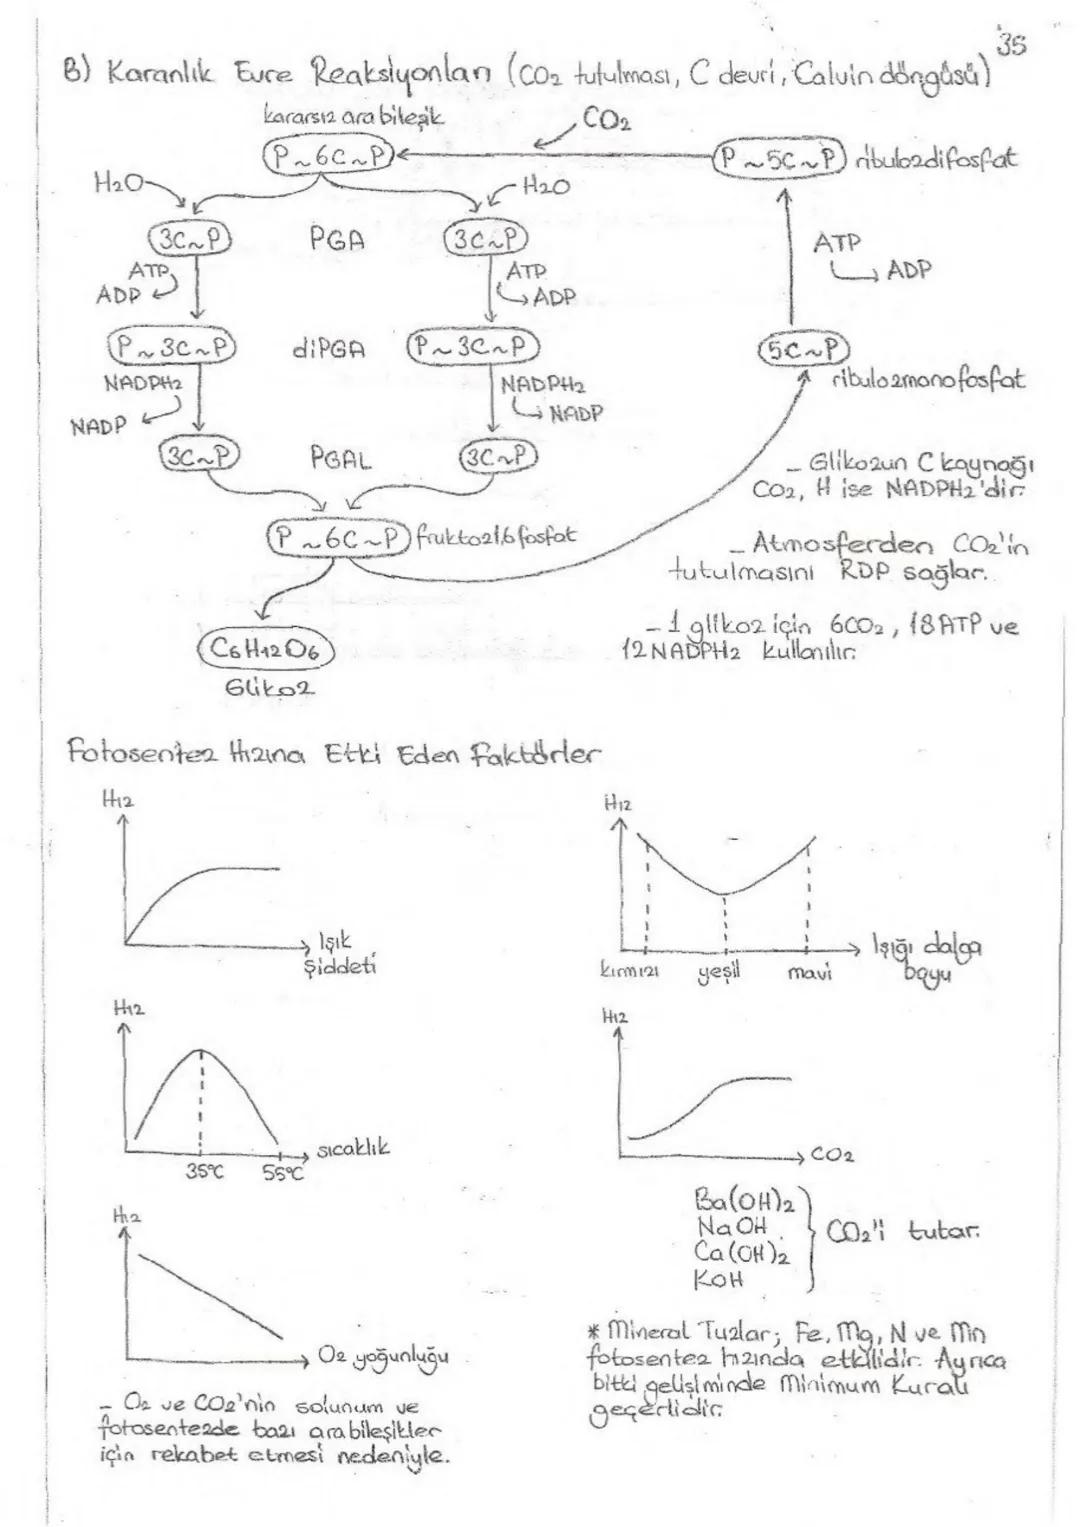 35
B) Karanlık Evre Reaksiyonları (CO2 tutulması, C devri, Calvin döngüsü)
kararsız ara bileşik
CO2
P~6C~P
P~5C~P ribulozdifosfat
H2O
H2O
3C~P PGA 3C~P
ATP ADP
ATP ADP
ATP ADP
P~3C~P diPGA P~3C~P
5C~P
ribulozmonofosfat
NADPH2 NADP
NADPH2 NADP
3C~P PGAL 3C~P
- Glikozun C kaynağı
CO2, H ise NADPH2'dir.
P~6C~P fruktoz1,6 fosfat
- Atmosferden CO2'in
tutulmasını RDP sağlar.
- 1 glikoz için 6CO2, 18 ATP ve
12 NADPH2 kullanılır.
C6H12O6
Glikoz
Fotosentez Hızına Etki Eden Faktörler
Hız
Işık
Şiddeti
Hız
kırmızı yeşil mavi
Işığı dalga
boyu
Hız
35°C 55°C
sıcaklık
Hız
CO2
Ba(OH)2
NaOH
Ca(OH)2
KOH
CO2'i tutar.
Hız
O2 yoğunluğu
- O2 ve CO2'nin solunum ve
fotosentezde bazı arabileşikler
için rekabet etmesi nedeniyle.
* Mineral Tuzlar; Fe, Mg, N ve Mn
fotosentez hızında etkilidir. Ayrıca
bitki gelişiminde Minimum Kuralı
geçerlidir.